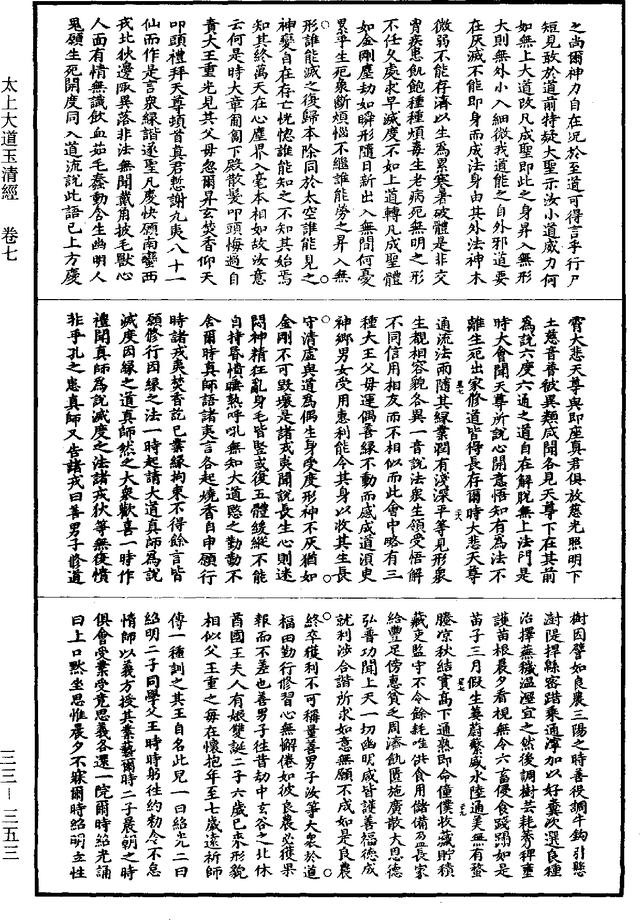 之尚爾神力自在況於至道可得言乎行尸
短見敢於道前特疑大聖示汝小道威力何
如無上大道改凡成聖即此之身昇入無形
大則無外小入細微我道能之自外邪道要
在灰滅不能即身而成法身由其外法神未
微弱不能存濟以生為累寒暑破體是非交
胃疾患飢飽種種煩毒生老病死無明之形
不任久處求早滅度不如上道轉凡成聖體
如金剛塵劫如瞬形隨日新出入無間何憂
累乎生死衆斷煩惱不繼誰能勞之昇入無
形誰能滅之復歸本除同於太空誰能見之
神變自在存亡恍惚誰能知之不知其始焉
知其終萬天在心塵界入毫本相如故汝意
云何是時大章匍匐下殿散髮叩頭悔過自
責大王重光見其父母忽爾昇玄焚香仰天
叩頭禮拜天尊頓首真君懇謝九夷八十一
仙而作是言衆緣諧遂聖凡慶快願南蠻西
戎北狄邊陬異落非法無聞戴角披毛獸心
人面有情無識飲血茹毛蠢動含生幽明人
鬼願生死開度同入道流說此語已上方慶
霄大悲天尊與即座真君俱放慈光照明下
土慈音普被異類咸聞各見天尊下在其前
為說六度六通之道自在解脫無上法門是
時大會聞天尊所說心開意悟知有為法不
離生死出家修道皆得長存爾時大悲天尊
通流法雨隨其緣業潤有淺深平等見形衆
生覩相容貌各異一音說法衆生領受悟解
不同信用相友而不相似而此會中略有三
種大王父母運偶善緣不動而感成道須臾
神鄉男女受用惠利能令其身以收其生長
守清虛與道為偶生身受度形神不灰猶如
金剛不可毀壞是諸戎夷聞說長生心則迷
悶神精狂亂身毛皆竪或復五體緩縱不能
自持昏憒曀熱呼吼無知大道愍之勤勤不
舍爾時真師語諸夷言各起燒香自申願行
時諸戎夷焚香訖已業緣拘束不得餘言皆
願修行因緣之法一時起請大道真師為說
滅度因緣之道真師然之大衆歡喜一時作
禮聞真師為說滅度之法諸戎狄等無復憤
非乎孔之患真師又告諸戎曰善男子修道
樹因譬如良農三陽之時善役調牛鈎引懸
澍隄捍緜密踏乘通澤加以好糞次選良種
治擇蕪穢溫溼宜之然後調樹芸耗莠稗重
護苗根晨夕看視無令六畜侵食踐蹋如是
苗子三月假生蔓蔚繁盛水陸通美無有蝥
螣凉秋結實高下通熟即命僮僕收藏貯積
藏吏監守不令餘耗唯供食用儲備盈長家
給豐足傍惠貧乏周濟飢匱施廣散大恩德
弘普功聞上天一切幽明咸皆護善福德成
就利涉合諧所求如意無願不成如是良農
終卒獲利不可稱量善男子汝等大衆於道
福田勤行修習心無懈倦如彼良農必獲果
報而不差也善男子往昔劫中玄谷之北休
酋國王夫人有娠雙誕二子六歲已來形貌
相似父王重之每在懷抱年至七歲遠祈師
傅一種訓之其王自名此兒一曰紹光二曰
紹明二子同學父王時時躬往約勑令不怠
惰師以義方授其業藝爾時二子晨朝之時
俱會受業受竟思義各選一院爾時紹光誦
曰上口默坐思惟晨夕不寐爾時紹明立性
太上大道玉清經　卷七
三三—三五三